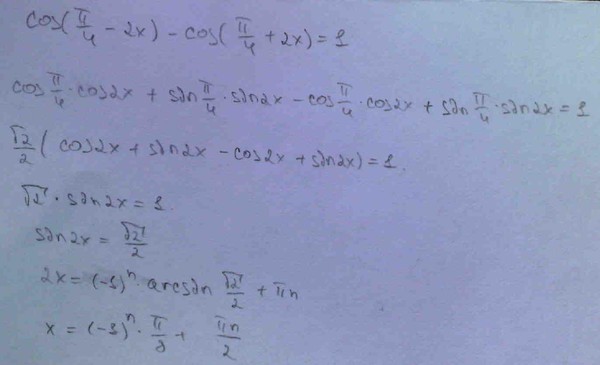 cos(π/4 - 2x) - cos(π/4 + 2x) = 1
cos π/4 · cos2x + sin π/4 · sin2x - cos π/4 · cos2x + sin π/4 · sin2x = 1
√2/2 (cos2x + sin2x - cos2x + sin2x) = 1.
√2 · sin2x = 1.
sin2x = √2/2
2x = (-1)ⁿ · arcsin √2/2 + πn
x = (-1)ⁿ · π/8 + πn/2